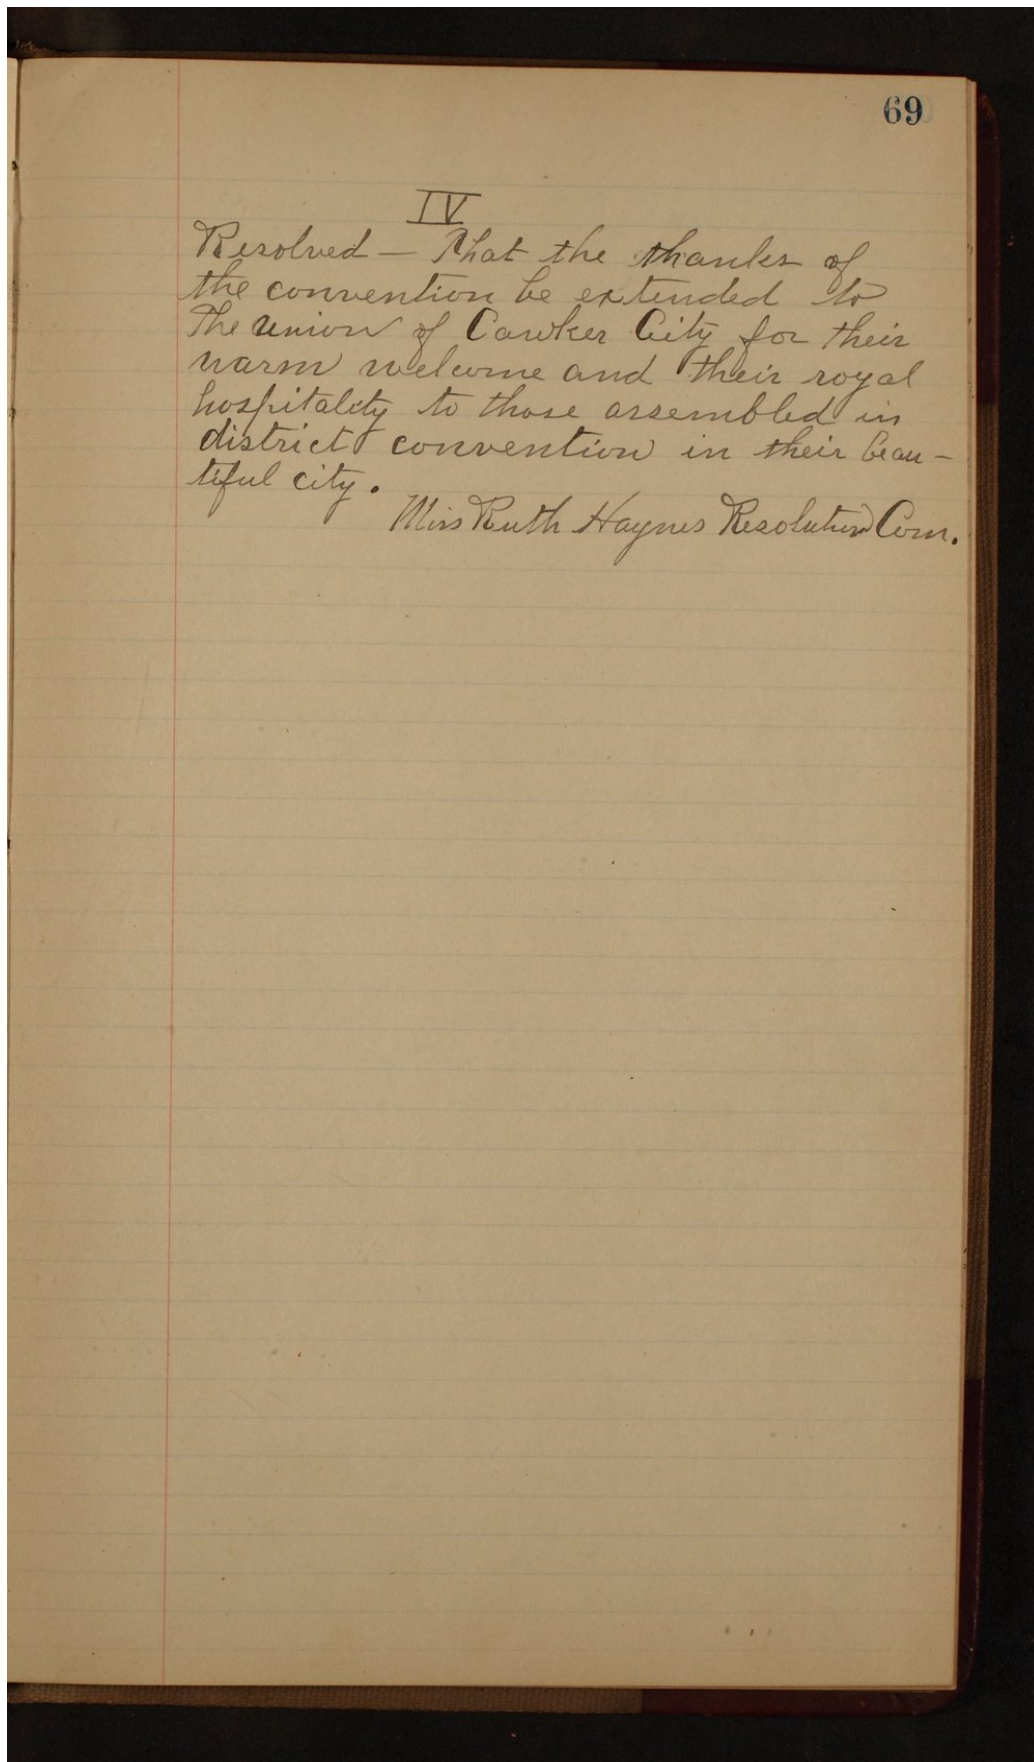 69
IV
Resolved — That the thanks of
the convention be extended to
The Union of Cawker City for their
warm welcome and their royal
hospitality to those assembled in
district convention in their beau-
tiful city.
Miss Ruth Haynes Resolution Com.